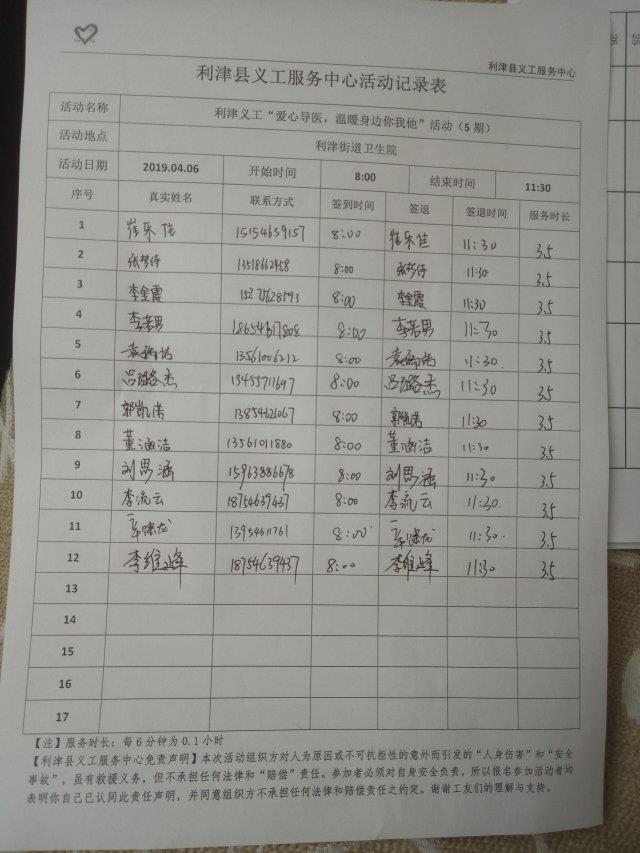 利津县义工服务中心
利津县义工服务中心活动记录表
活动名称 利津义工“爱心导医，温暖身边你我他”活动（5 期）
活动地点 利津街道卫生院
活动日期 2019.04.06 开始时间 8:00 结束时间 11:30
序号 真实姓名 联系方式 签到时间 签退 签退时间 服务时长
1 崔乐佳 15154659157 8:00 崔乐佳 11:30 3.5
2 张梦倚 13518662458 8:00 张梦倚 11:30 3.5
3 李金霞 8:00 李金霞 11:30 3.5
4 李若男 18654617808 8:00 李若男 11:30 3.5
5 13561006212 8:00 11:30 3.5
6 吕璐杰 8:00 吕璐杰 11:30 3.5
7 郭凯浩 13854621067 8:00 郭凯浩 11:30 3.5
8 董涵洁 13561011880 8:00 董涵洁 11:30 3.5
9 刘思涵 15963886678 8:00 刘思涵 11:30 3.5
10 李流云 18754639437 8:00 李流云 11:30 3.5
11 13954611761 8:00 11:30 3.5
12 李维峰 18754639437 8:00 李维峰 11:30 3.5
13
14
15
16
17
【注】服务时长：每 6 分钟为 0.1 小时
【利津县义工服务中心免责声明】本次活动组织方对人为原因或不可抗拒性的意外而引发的“人身伤害”和“安全
事故”，虽有救援义务，但不承担任何法律和“赔偿”责任。参加者必须对自身安全负责，所以报名参加活动者均
表明你自己已认同此责任声明，并同意组织方不承担任何法律和赔偿责任之约定。谢谢工友们的理解与支持。
25
26